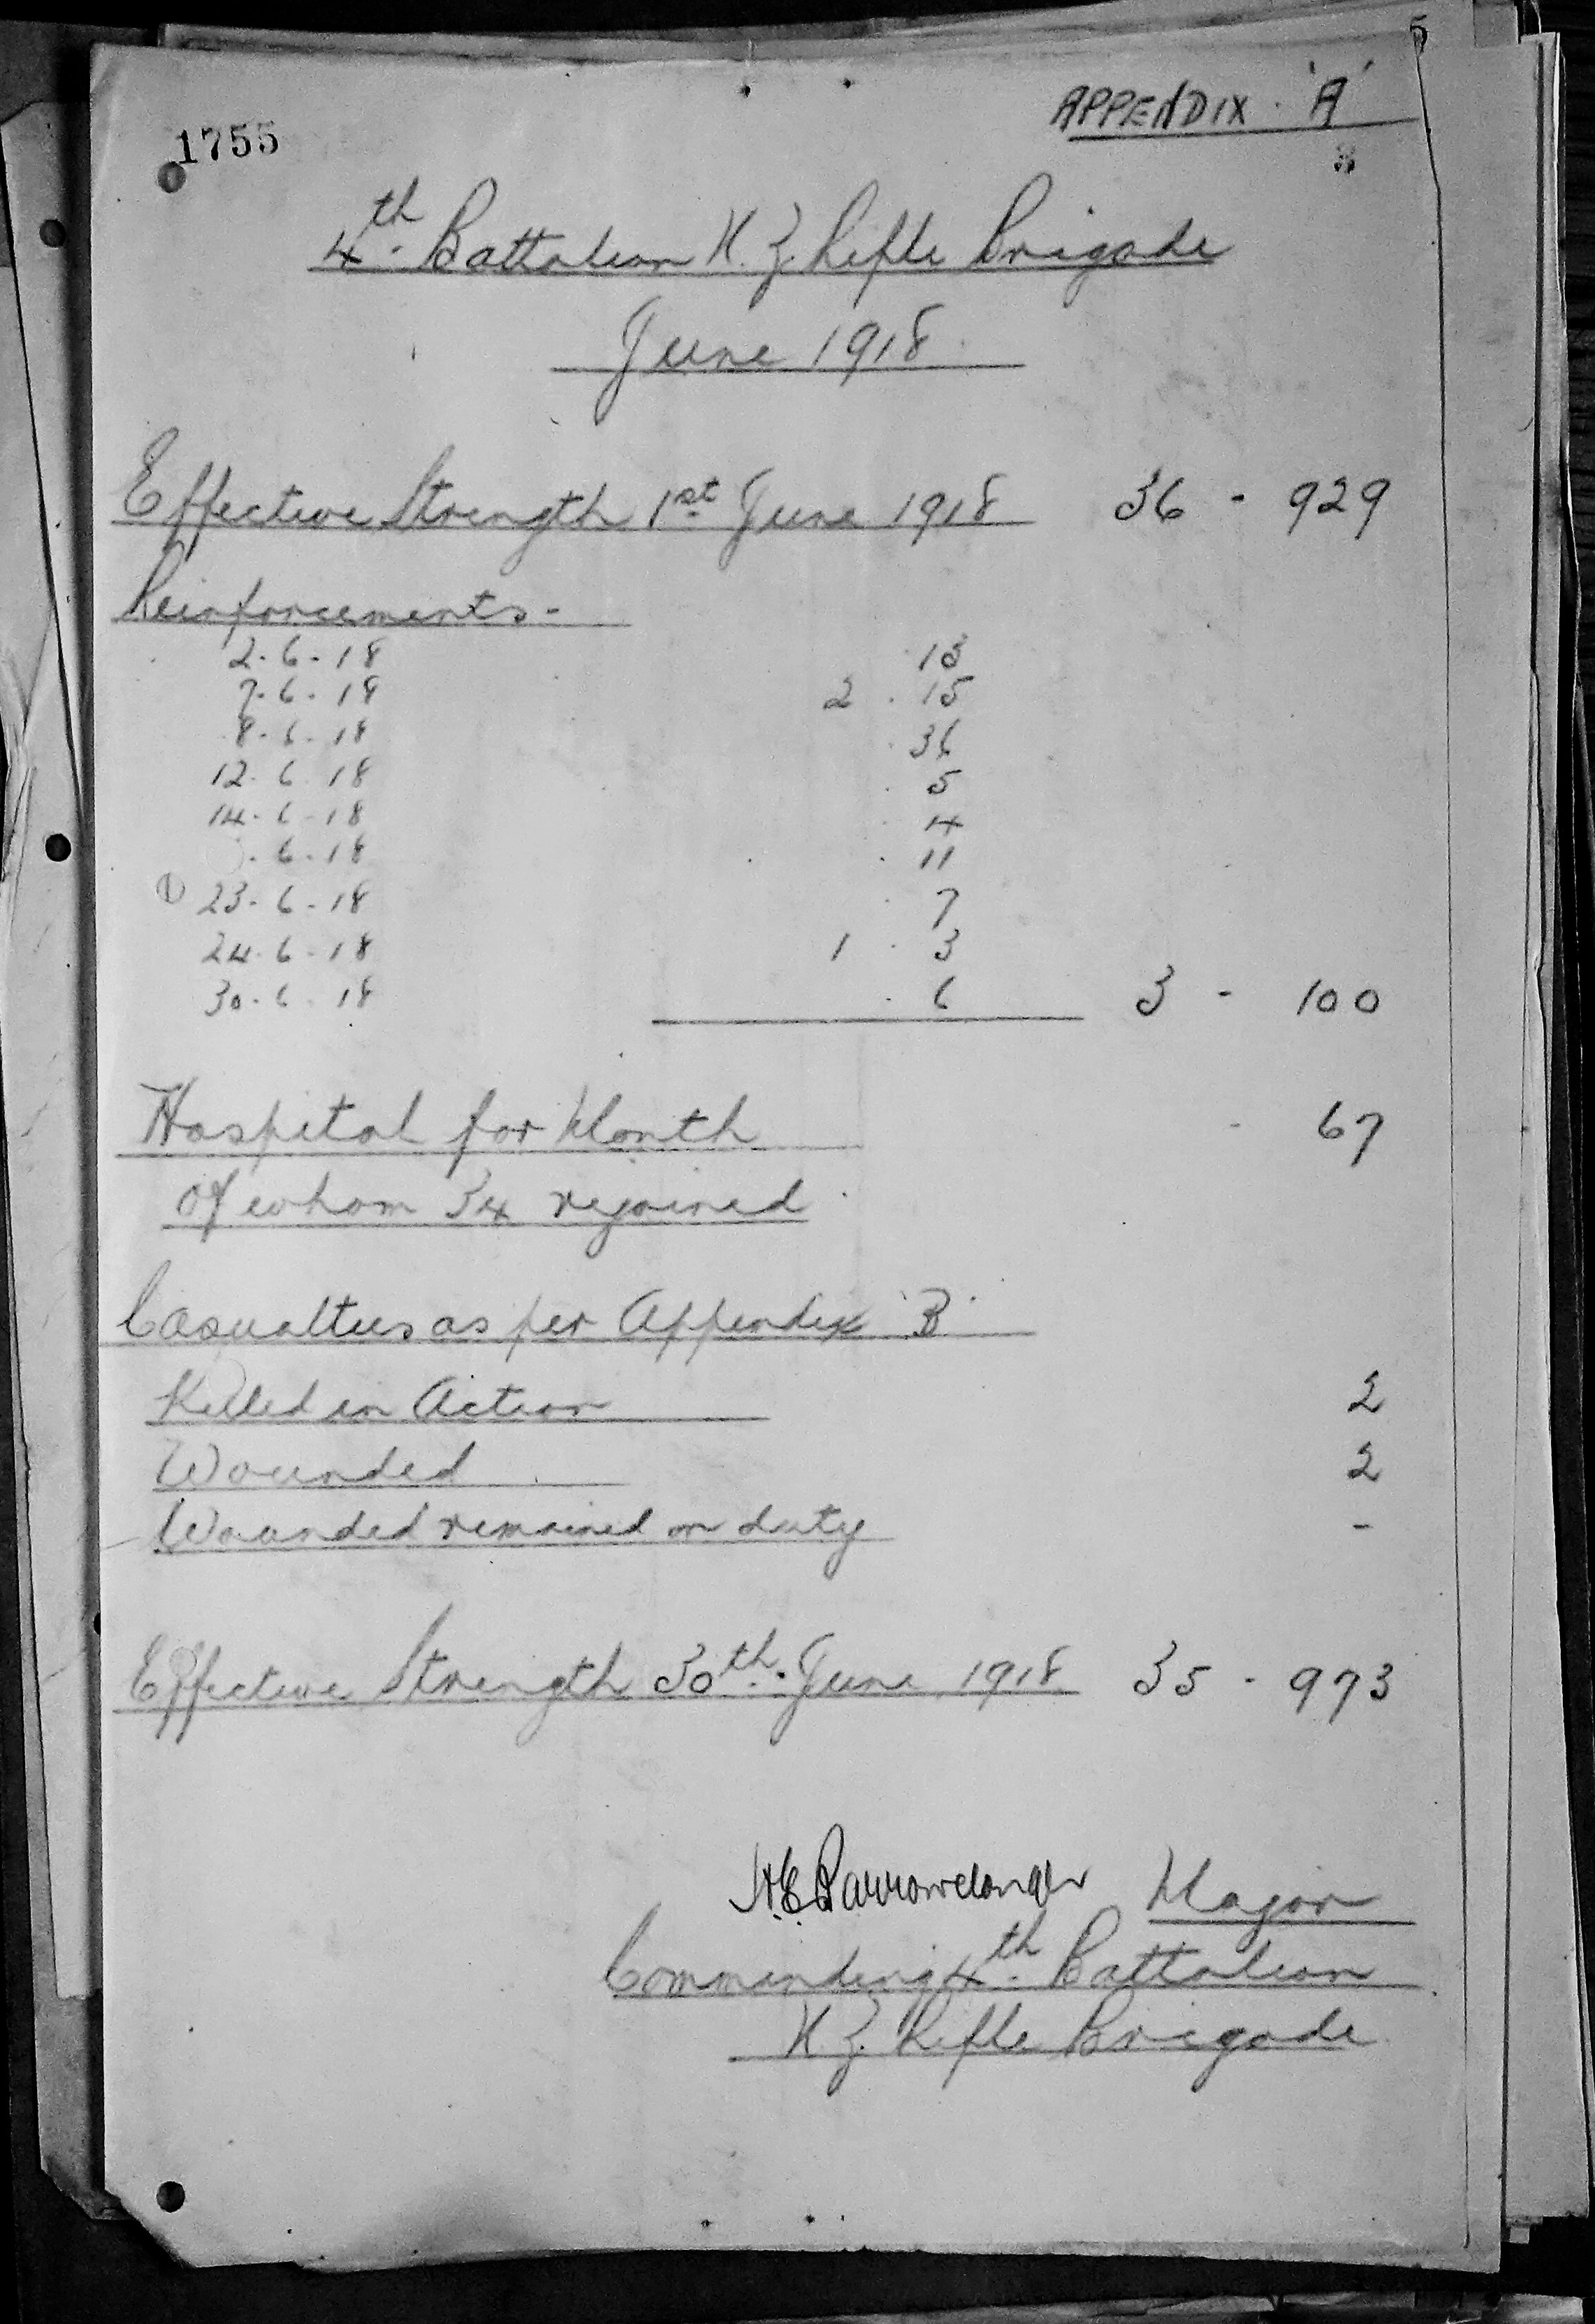 5
1755
APPENDIX 'A'
4th Battalion N.Z. Rifle Brigade
June 1918
Effective Strength 1st June 1918 36 - 929
Reinforcements -
2-6-18 13
7-6-18 2 . 15
8-6-18 36
12-6-18 5
14-6-18 4
. 6-18 11
23-6-18 7
24-6-18 1 . 3
30-6-18 6 3 - 100
Hospital for Month - 67
Of whom 34 rejoined
Casualties as per Appendix 'B'
Killed in Action 2
Wounded 2
Wounded remained on duty -
Effective Strength 30th June 1918 35 - 973
Major
Commanding 4th Battalion
N Z. Rifle Brigade